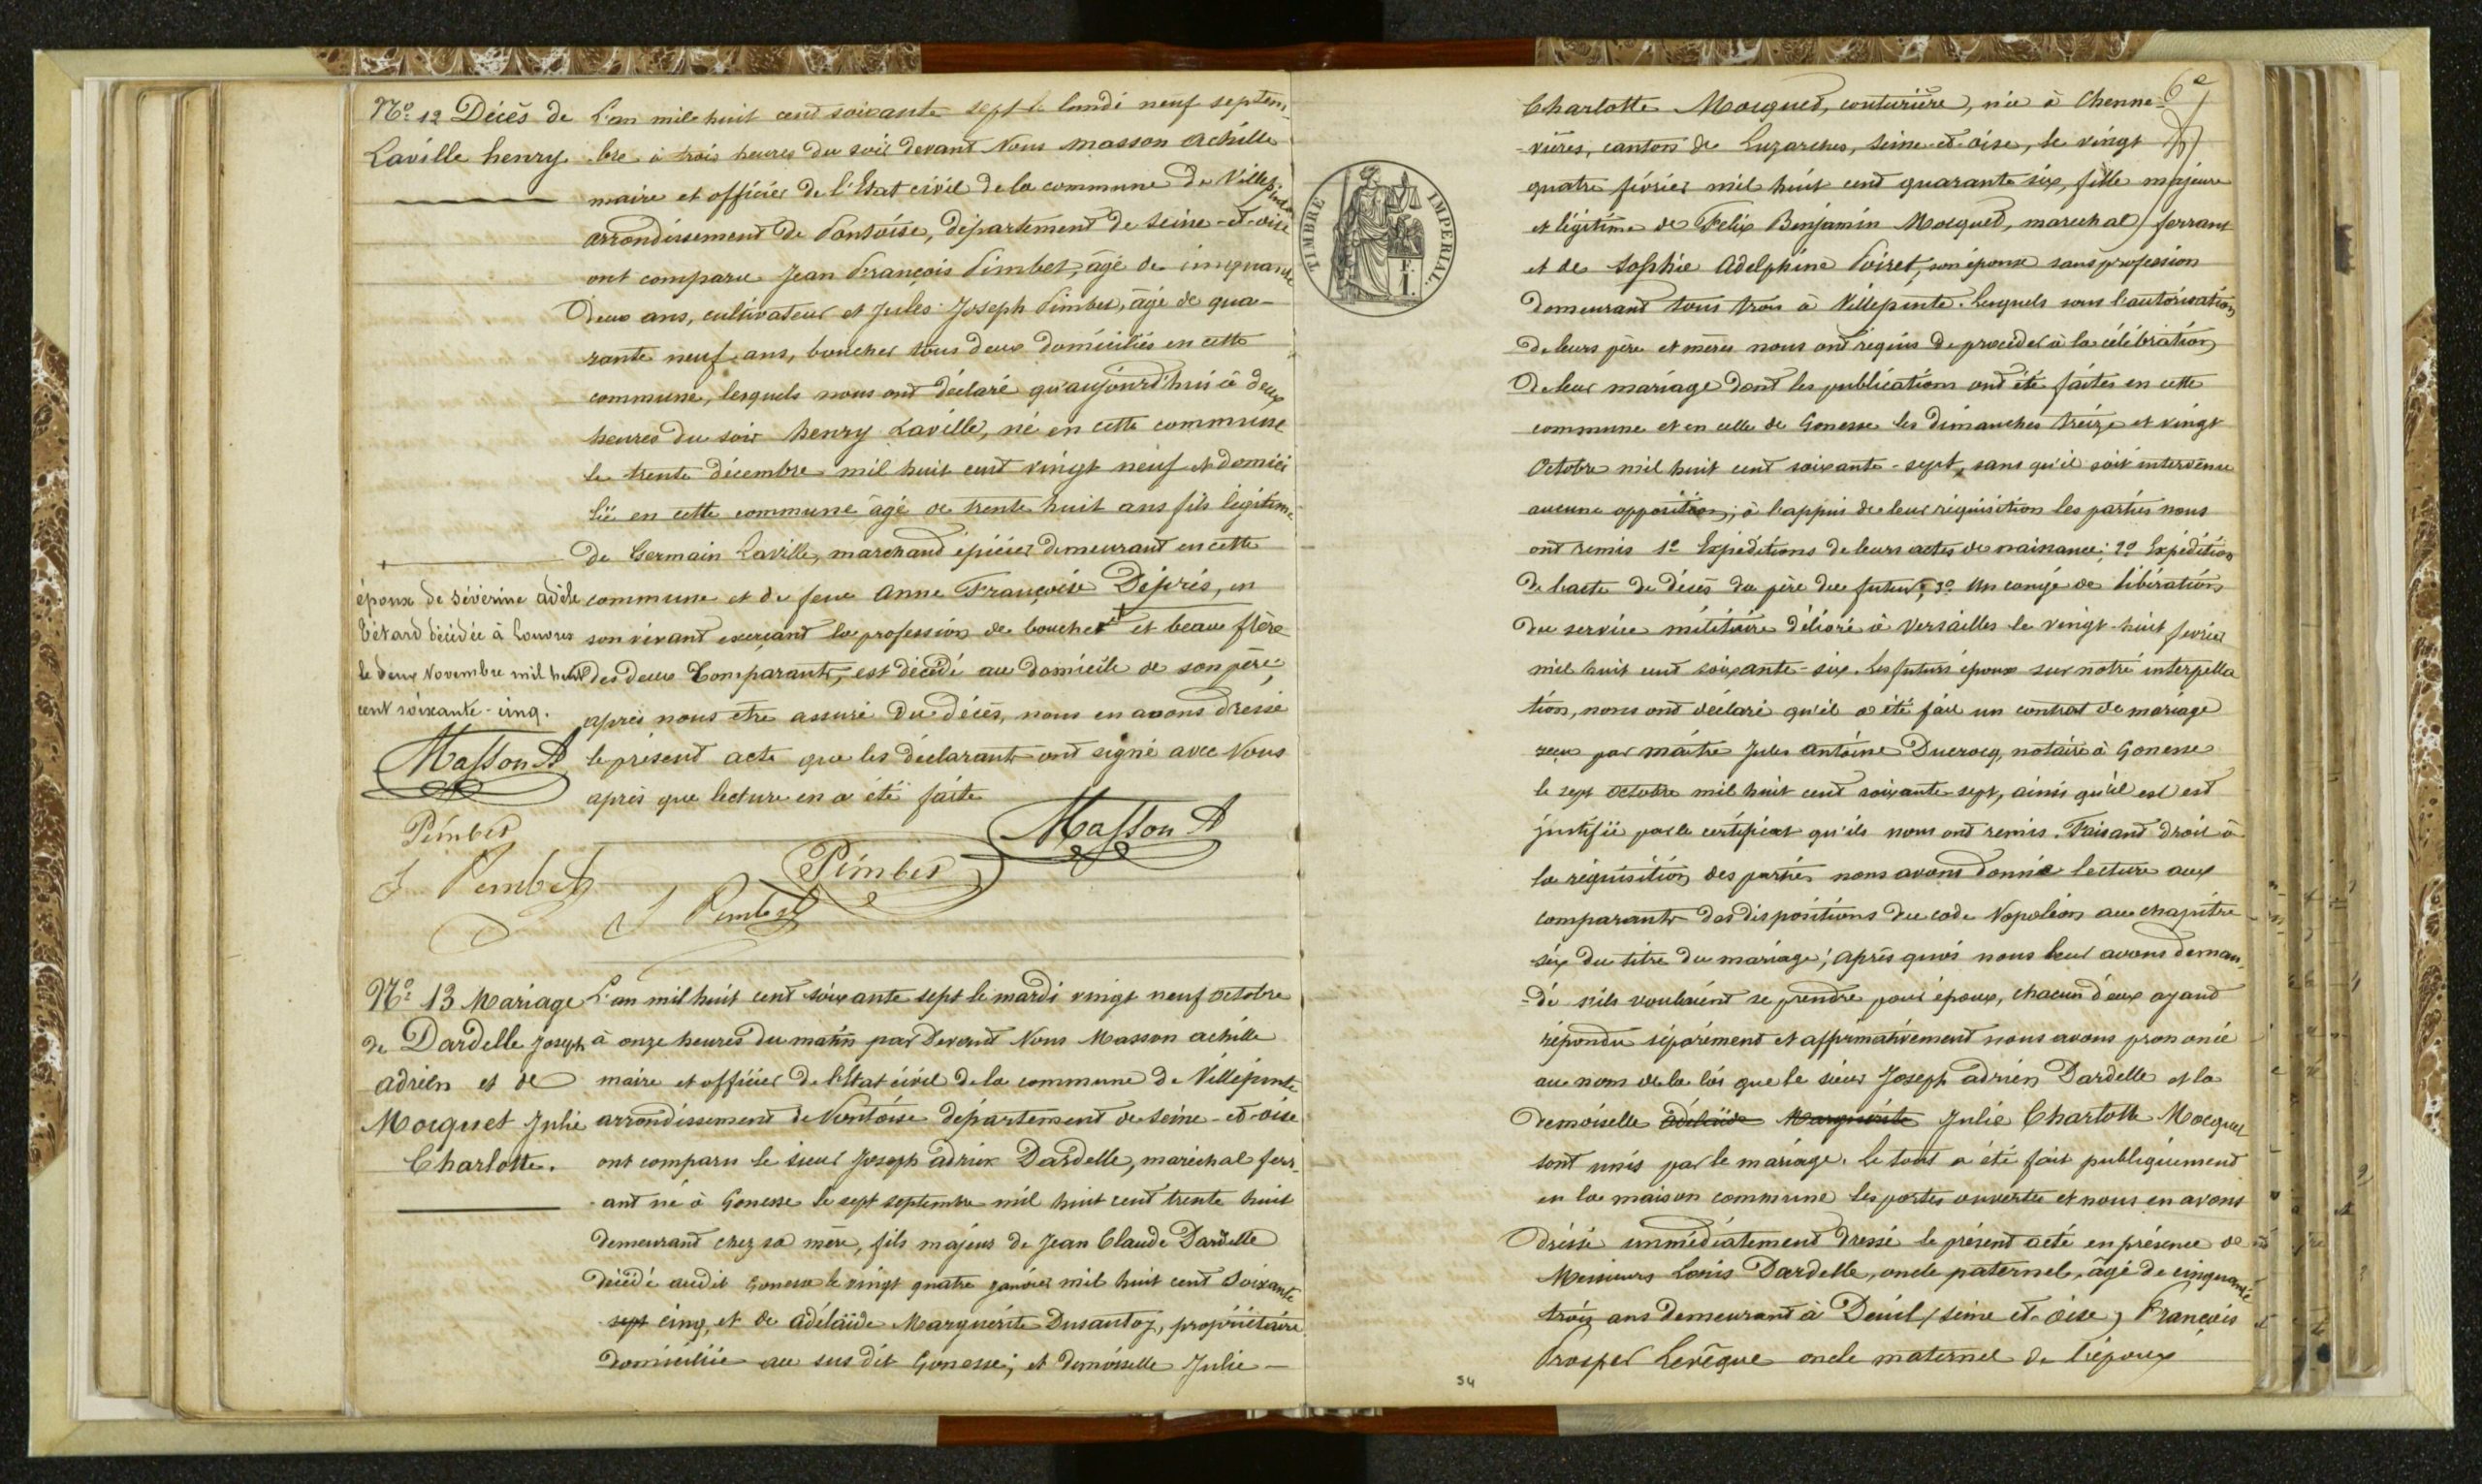 Nº 12 Décès de
Laville henry.
L'an mile huit cent soixante sept le lundi neuf septem-
bre à trois heures du soir devant Nous Masson Achille
maire et officier de l'Etat civil de la commune de Villepinte
arrondissement de Pontoise, département de Seine-et-oise
ont comparu Jean François Pimbet, âgé de cinquante
deux ans, cultivateur et Jules Joseph Pimbet, âgé de qua-
rante neuf ans, boucher tous deux domiciliés en cette
commune, lesquels nous ont déclaré qu'aujourd'hui à deux
heures du soir henry Laville, né en cette commune
le trente décembre mil huit cent vingt neuf et domici
lié en cette commune âgé de trente huit ans fils légitime
de Germain Laville, marchand épicier demeurant en cette
commune et de feue Anne Françoise Déprés, en
son vivant exerçant la profession de boucher et beau frère
des deux Comparants, est décédé au domicile de son père,
après nous être assuré du décès, nous en avons dressé
le présent acte que les déclarants ont signé avec Nous
après que lecture en a été faite
époux de Séverine adèle
Bétard décédée à Louvres
le deux Novembre mil huit
cent soixante-cinq.
Masson A
Pimbet
J Pimbet
Masson A
Pimbet
J Pimbet
Nº 13 Mariage
de Dardelle Joseph
adrien et de
Mocquet Julie
Charlotte.
L'an mil huit cent soixante sept le mardi vingt neuf octobre
à onze heures du matin par Devant Nous Masson achille
maire et officier de l'Etat civil de la commune de Villepinte
arrondissement de Pontoise département de Seine-et-oise
ont comparu le sieur Joseph adrien Dardelle, maréchal ferr-
ant né à Gonesse le sept septembre mil huit cent trente huit
demeurant chez sa mère, fils majeur de Jean Claude Dardelle
décédé audit Gonesse le vingt quatre janvier mil huit cent soixante
sept cinq, et de adélaïde Marguérite Dusautoy, propriétaire
domiciliée au sus dit Gonesse; et demoiselle Julie
6e
Charlotte Mocquet, couturière, née à Chenne-
vières, canton de Luzarches, Seine-et-oise, le vingt
quatre février mil huit cent quarante six, fille majeure
et légitime de Felix Benjamin Mocquet, marechal ferrant
et de Sophie Adelphine Poiret, son épouse sans profession
demeurant tous trois à Villepinte. Lesquels sous l'autorisation
de leurs père et mères nous ont réquis de procéder à la célébration
de leur mariage dont les publications ont été faites en cette
commune et en celle de Gonesse les dimanches treize et vingt
Octobre mil huit cent soixante-sept, sans qu'il soit intervenu
aucune opposition; à l'appui de leur réquisition les parties nous
ont remis 1º Expéditions de leurs actes de naissance; 2º Expédition
de l'acte de décès du père du futur; 3º Un congé de libération
du service militaire délivré à Versailles le vingt-huit fevrier
mil huit cent soixante-six. Les futurs époux sur notre interpella
tion, nous ont déclaré qu'il a été fait un contrat de mariage
reçu par maître Jules Antoine Ducrocq, notaire à Gonesse
le sept octobre mil huit cent soixante-sept, ainsi qu'il est est
justifié par le certificat qu'ils nous ont remis. Faisant droit à
la réquisition des parties nous avons donné lecture aux
comparants des dispositions du code Napoléon au chapitre
six du titre du mariage; après quoi nous leur avons deman-
-dé s'ils voulaient se prendre pour époux, chacun d'eux ayant
répondu séparément et affirmativement nous avons prononcé
au nom de la loi que le sieur Joseph adrien Dardelle et la
demoiselle adélaïde Marguérite Julie Charlotte Mocquet
sont unis par le mariage. Le tout a été fait publiquement
en la maison commune les portes ouvertes et nous en avons
dréssé immédiatement dressé le présent acte en présence de
Messieurs Louis Dardelle, oncle paternel, âgé de cinquante
trois ans demeurant à Deuil (Seine-et-oise) François
Prosper Levêque oncle maternel de l'époux
TIMBRE IMPERIAL
F.
1.
54